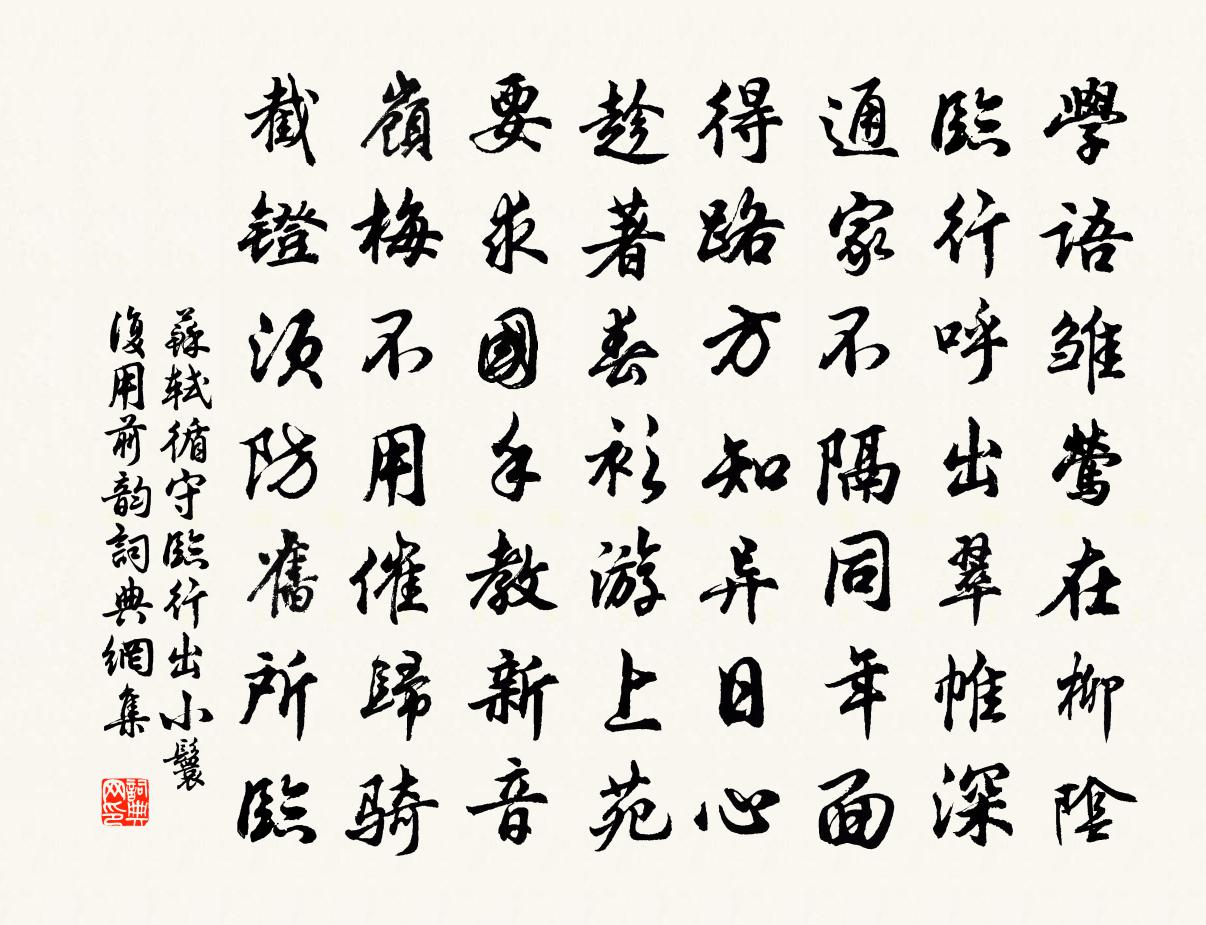 學語雏莺在柳陰
臨行呼出翠帷深
通家不隔同年面
得路方知异日心
趁著春衫游上苑
要求國手教新音
嶺梅不用催歸騎
截镫須防舊所臨
蘇軾循守臨行出小鬟
復用前韵詞典網集
詞典网印